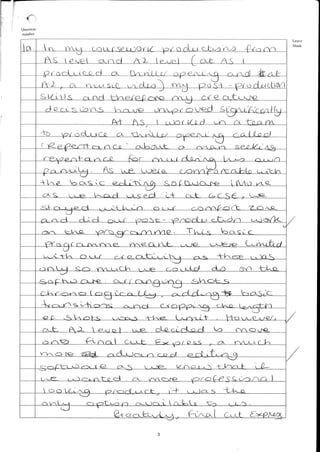 Question
Number
Leave
Blank
1a In my coursework productions from
AS level and A2 level (at AS I
produced a thriller opening and at
A2, a music video) my post-production
skills and therefore my creative
decisions have improved significantly.
At AS, I worked in a team
to produce a thriller opening called
'Repentance' about a man seeking
repentance for murdering his own
family. As we were comfortable with
the basic editing software iMovie
as we had used it at GCSE, we
stayed within our comfort zone
and did our post-production work
on the programme. This basic
programme meant we were limited
with our creativity as there was
only so much we could do on the
software arranging shots
chronologically, adding basic
transitions and cropping the length
of shots was the limit. However,
at A2 level we decided to move
onto Final Cut Express, a much
more advanced editing
software as we knew that if
we wanted a more professional
looking product, it was the
only option available to us.
Creatively, Final Cut Express
3